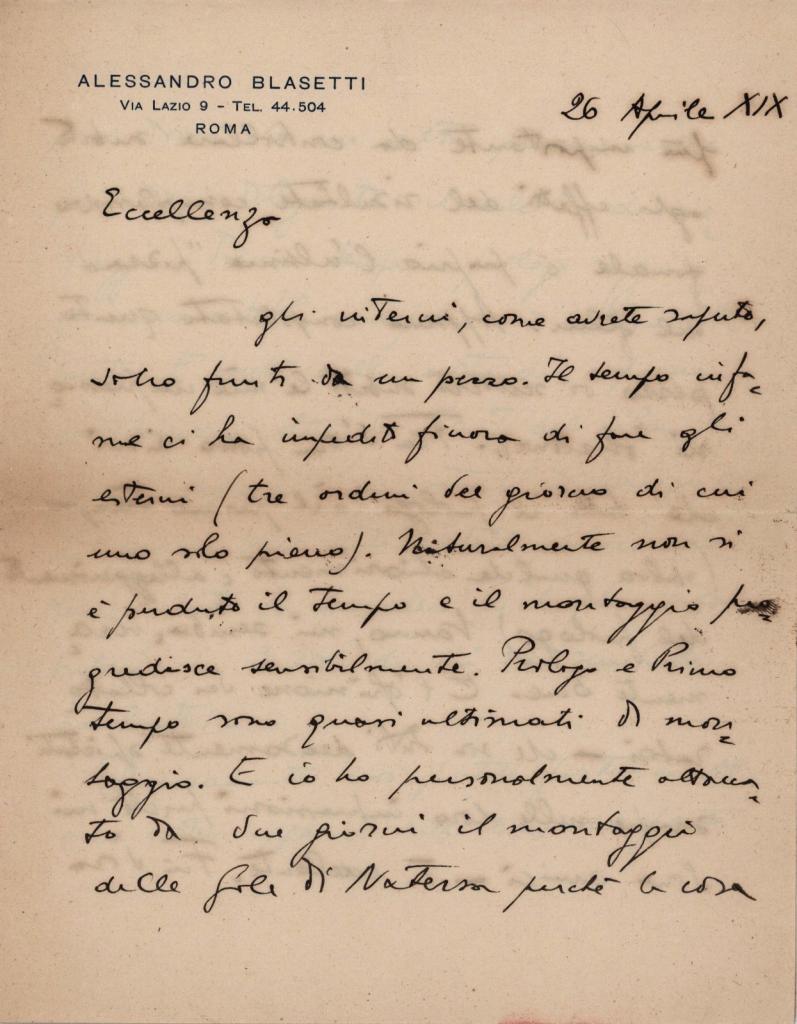 ALESSANDRO BLASETTI
VIA LAZIO 9 - TEL. 44.504
ROMA
26 Aprile XIX
Eccellenza
gli interni, come avrete saputo,
sono finiti da un pezzo. Il tempo infa=
me ci ha impedito finora di fare gli
esterni (tre ordini del giorno di cui
uno solo pieno). Naturalmente non si
è perduto il tempo e il montaggio pro
gredisce sensibilmente. Prologo e Primo
tempo sono quasi ultimati di mon=
taggio. E io ho personalmente attacca=
to da due giorni il montaggio
delle Gole di Natersa perché la cosa